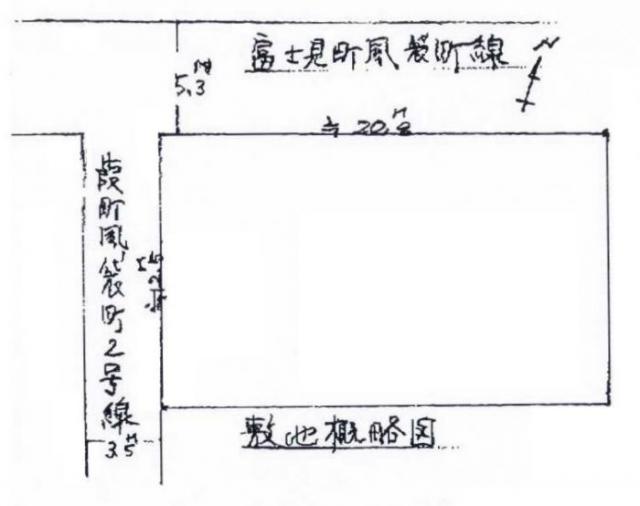 富士見町風袋町線
N
5.3M
≒20.8M
霞町風袋町2号線
3.5M
敷地概略図